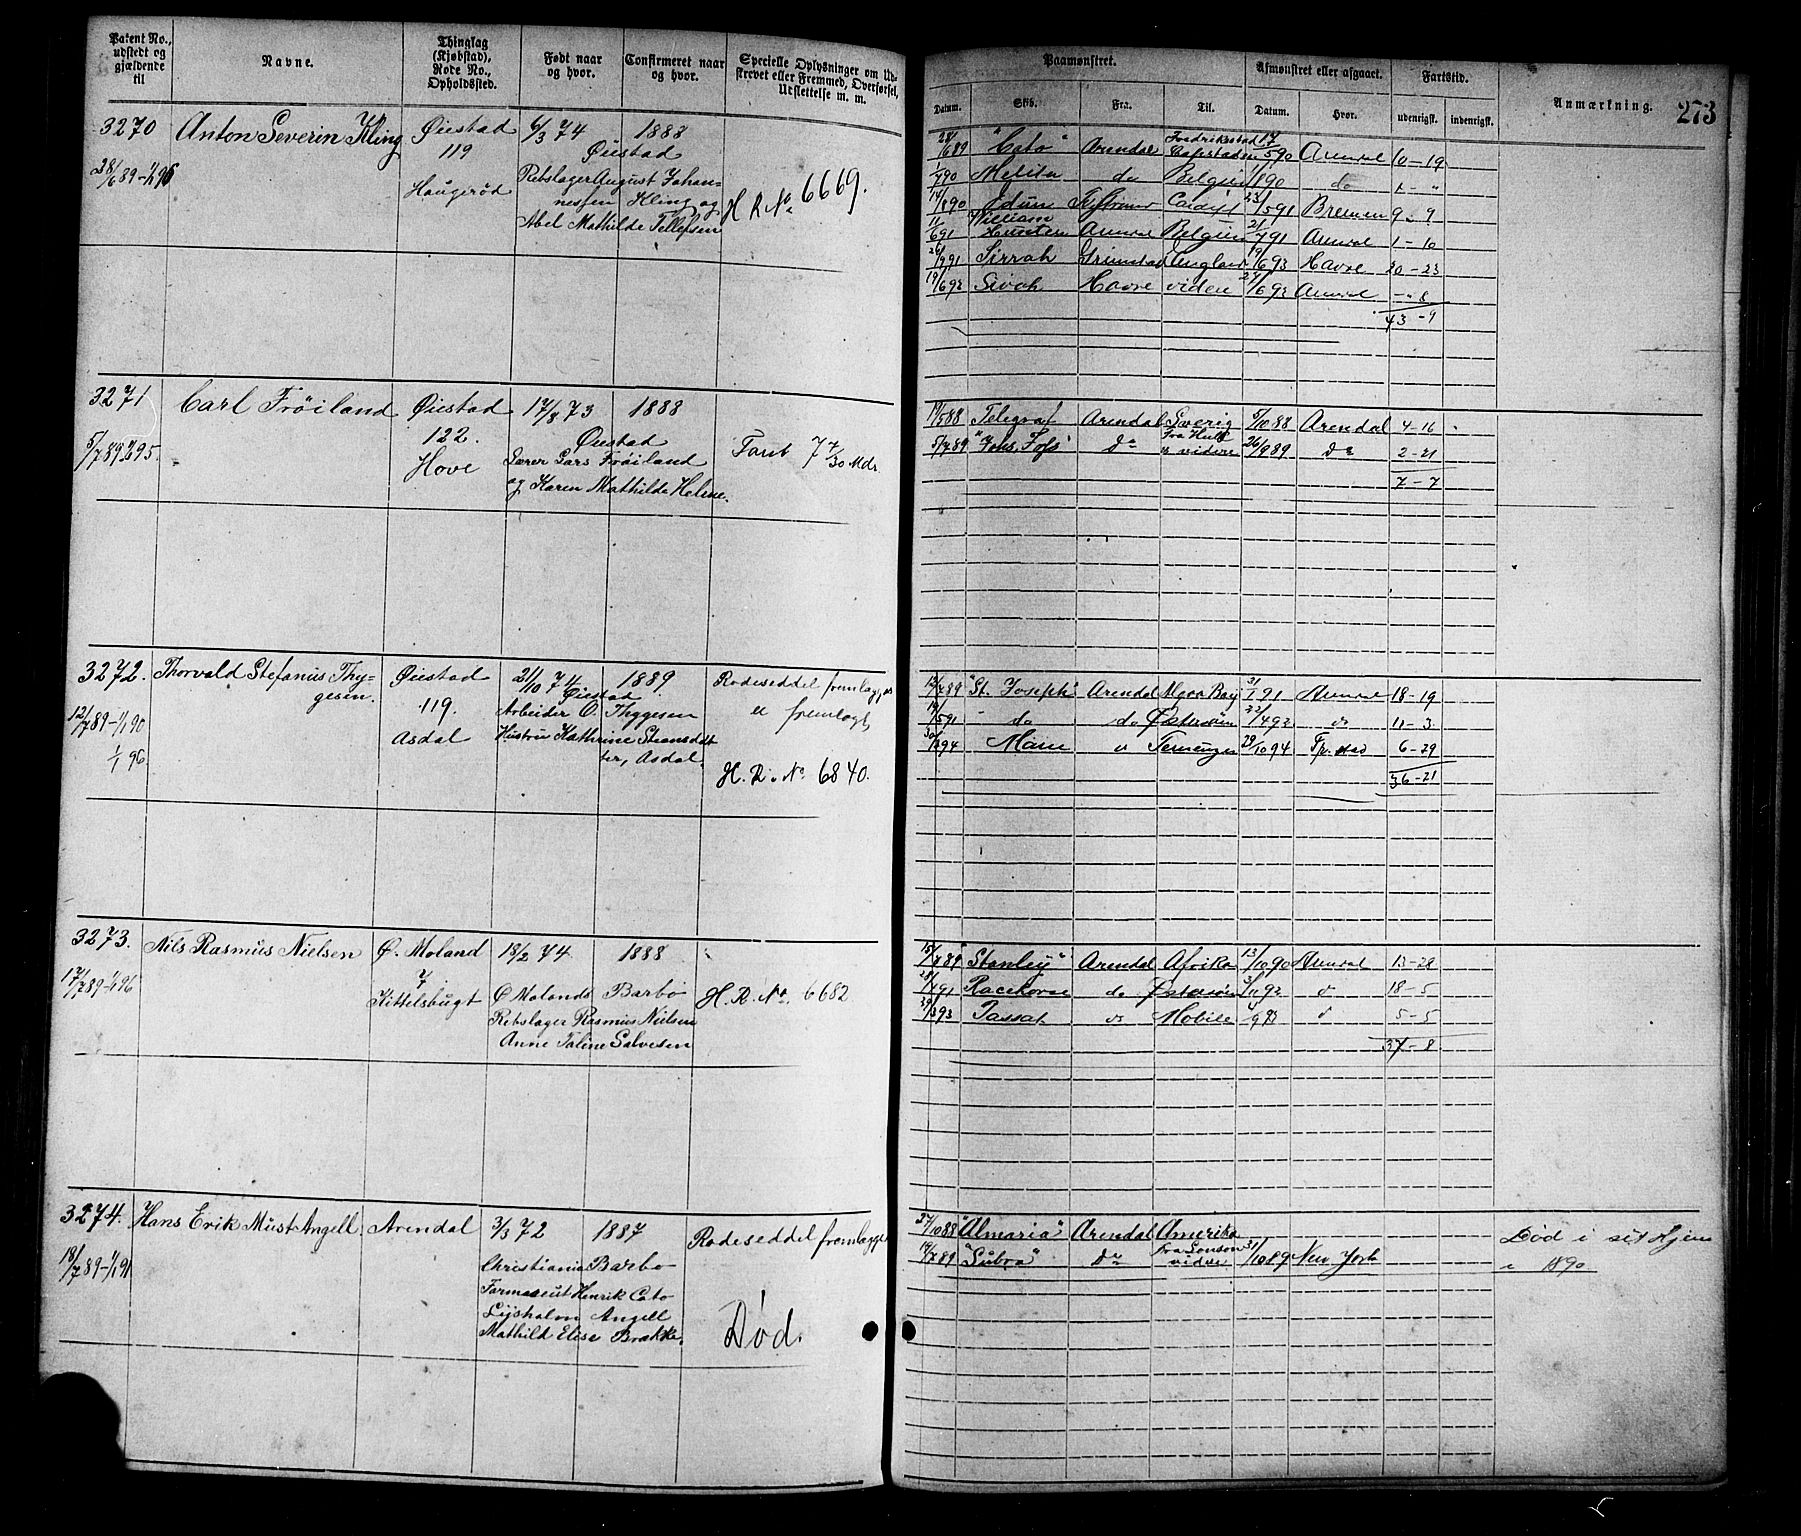 Patent No.,
udstedt og
gjældende
til
Navne.
Thinglag
(Kjøbstad),
Rode No.,
Opholdssted.
Født naar
og hvor.
Confirmeret naar
og hvor.
Specielle Oplysninger om Ud-
skrevet eller Fremmed, Overførsel,
Udslettelse m. m.
Paamønstret.
Datum.
Skib.
Fra.
Til.
Afmønstret eller afgaaet.
Datum.
Hvor.
Fartstid.
udenrigsk.
indenrigsk.
Anmærkning.
273
3270
28/6 89-1/1 96
Anton Severin Kling
Øiestad
119
Haugerød
6/3 74
1888
Øiestad
Rebslager August Johan-
nessen Kling og
Abel Mathilde Tellefsen
H R No 6669.
28/6 89 "Cato" Arendal Fredriksstad Capstaden 17/5 90 Arendal 10-19
Melita do Belgien do
Idun Cardiff 23/5 91 Bremen 9 " 9
11/6 91 William Hunter Arendal Belgien 21/7 91 Arendal 1-10
Sirrah Grimstad England 19/6 93 Havre 20-23
19/6 93 Sirah Havre videre Arendal -" 8
43-9
3271
5/7 89 1/1 95.
Carl Frøiland
Øiestad
122.
Hove
17/8 73
1888
Øiestad
Lærer Lars Frøiland
og Karen Mathilde Helene.
Farit 7 7/30 Mdr.
19/5 88 Telegraf Arendal Sverig 5/10 88 Arendal 4-16
5/7 89 "Johs. Foss" do fra Hull videre 26/9 89 do 2-21
7-7
3272.
12/7 89-1/1 90
1/1 96
Thorvald Stefanus Thy-
gesen.
Øiestad
119.
Asdal
21/10 74
1889.
Øiestad
Arbeider O. Thygesen
Hustru Kathrine Steensdat
ter, Asdal.
Rodeseddel fremlægges
er fremlagt,
H. R. No 6840.
12/7 89 "St. Joseph" Arendal Algoa Bay 31/1 91 Arendal 18-19
19/5 91 do do Østersøen do 11-3
Terneuzen 29/10 94 Fr. stad 6-29
36-21
3273.
17/7 89-1/1 96
Nils Rasmus Nielsen
Ø. Moland
7
Kittelsbugt
18/2 74
1888
Ø Molands
Barbo
Rebslager Rasmus Nielsen
Anne Taline Salvesen
H. R. No. 6682
15/7 89 "Stanley" Arendal Afrika 13/10 90 Arendal 13-28
Racehorse do Østersøen 18-5
Passat Mobile 5-5
37-8
3274.
18/7 89-1/1 91
Hans Erik Must Angell.
Arendal
3/3 72
1887
Christiania
Barbo
Farmaceut Henrik Cato
Lysholm Angell
Mathild Elise Brække.
Rodeseddel fremlægges
Død.
27/10 88 "Almaria" Arendal Amerika
19/7 89 "Subra" do fra London videre 31/10 89 New York
Død i sit Hjem
i 1890